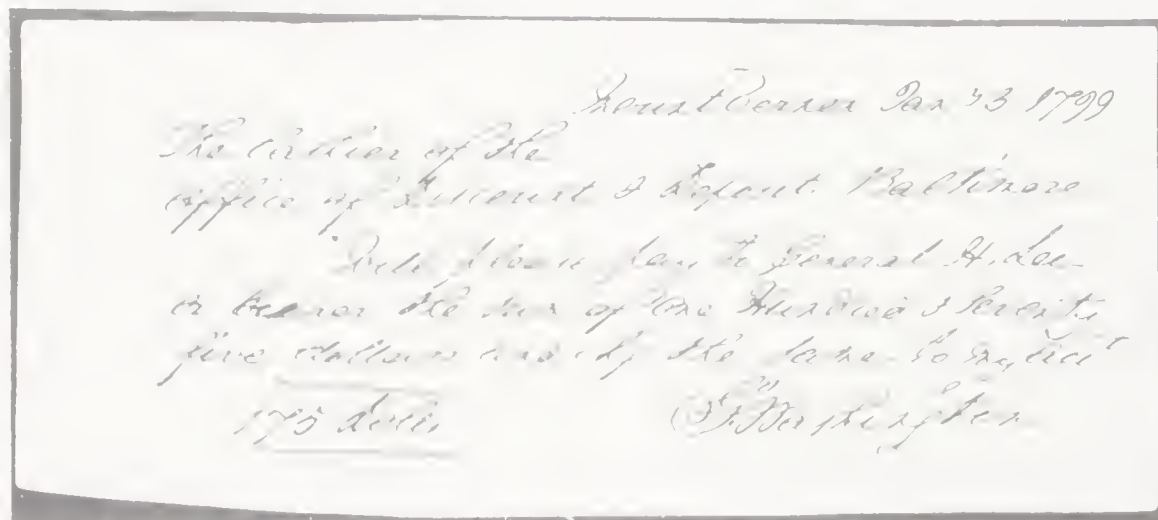 Mount Vernon Jan 23 1799
The Cashier of the
office of Discount & Deposit. Baltimore
Will please pay to General H. Lee
or bearer the sum of One Hundred & Seventy
five dollars and chg the same to my acct
175 Dolls
G. Washington